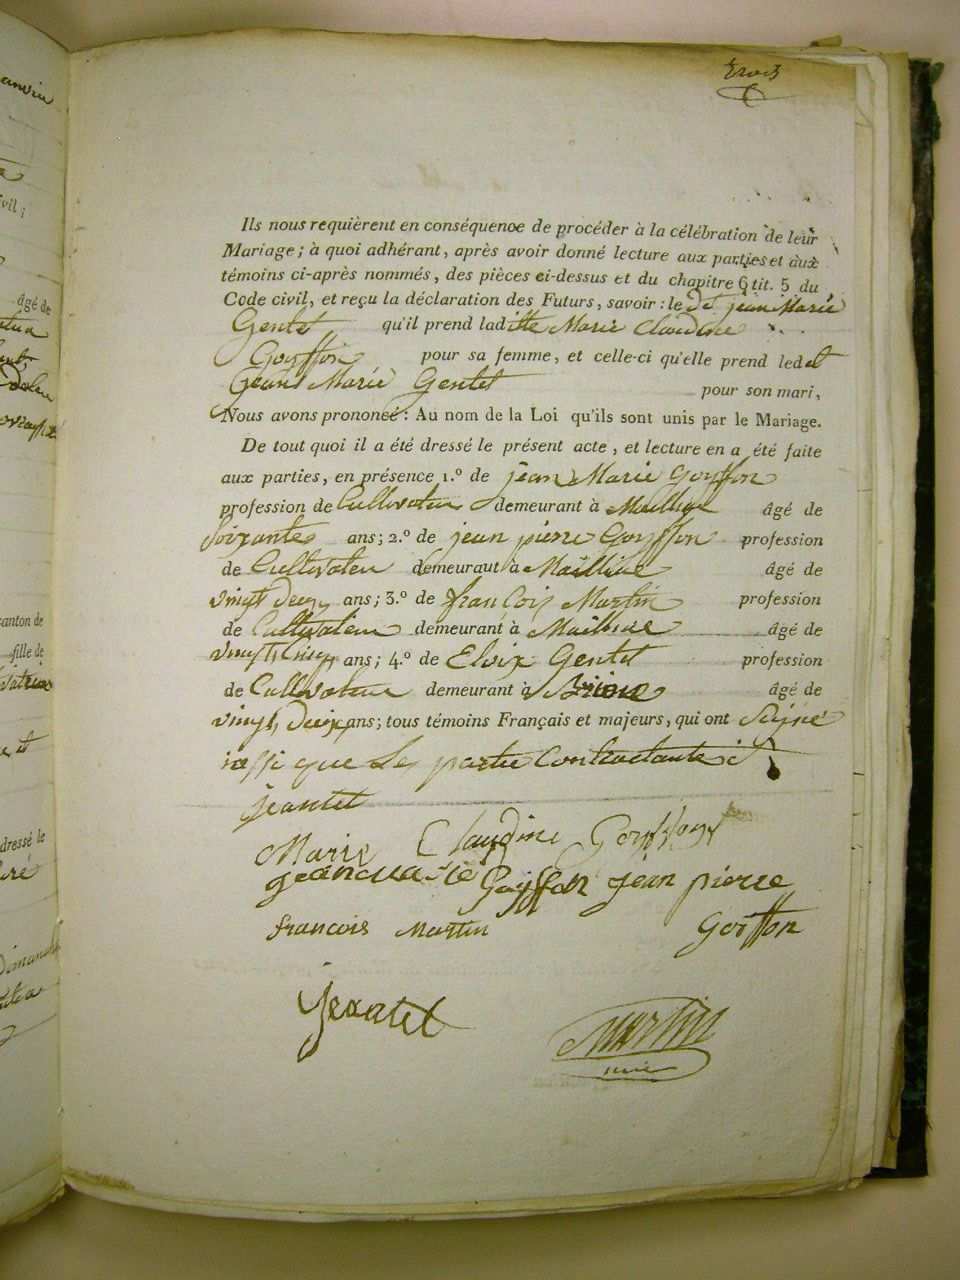 trois
Ils nous requièrent en conséquence de procéder à la célébration de leur
Mariage ; à quoi adhérant, après avoir donné lecture aux parties et aux
témoins ci-après nommés, des pièces ci-dessus et du chapitre 6 tit. 5 du
Code civil, et reçu la déclaration des Futurs, savoir : le dt jean Marie
Gentet qu'il prend laditte Marie Claudine
Goyffon pour sa femme, et celle-ci qu'elle prend ledet
Jean Marie Gentet pour son mari,
Nous avons prononcé : Au nom de la Loi qu'ils sont unis par le Mariage.
De tout quoi il a été dressé le présent acte, et lecture en a été faite
aux parties, en présence 1.º de jean Marie Goyffon
profession de Cultivateur demeurant à Mailliae âgé de
Soixante ans ; 2.º de jean pierre Goyffon profession
de Cultivateu demeurant à Mailliae âgé de
vingt deux ans ; 3.º de françois Martin profession
de Cultivateur demeurant à Mailliae âgé de
vingt cinq ans ; 4.º de Eloix Gentet profession
de Cultivateur demeurant à Brione âgé de
vingt deux ans ; tous témoins Français et majeurs, qui ont Signé
que Les partie Contractante
jeantet
Marie Claudine Goyffont
jean marie Goyffon jean pierre
francois Martin Goiffon
Jeantet
Martin